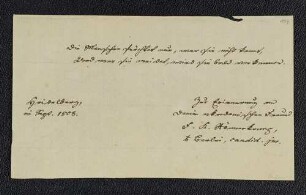 Die Menschen fürchtet nur, wer sie nicht kennt,
Und wer sie meidet, wird sie bald verkennen.
Heidelberg,
im Sept. 1808.
Zur Erinnerung an
Deinen akademischen Freund
candid. jur.